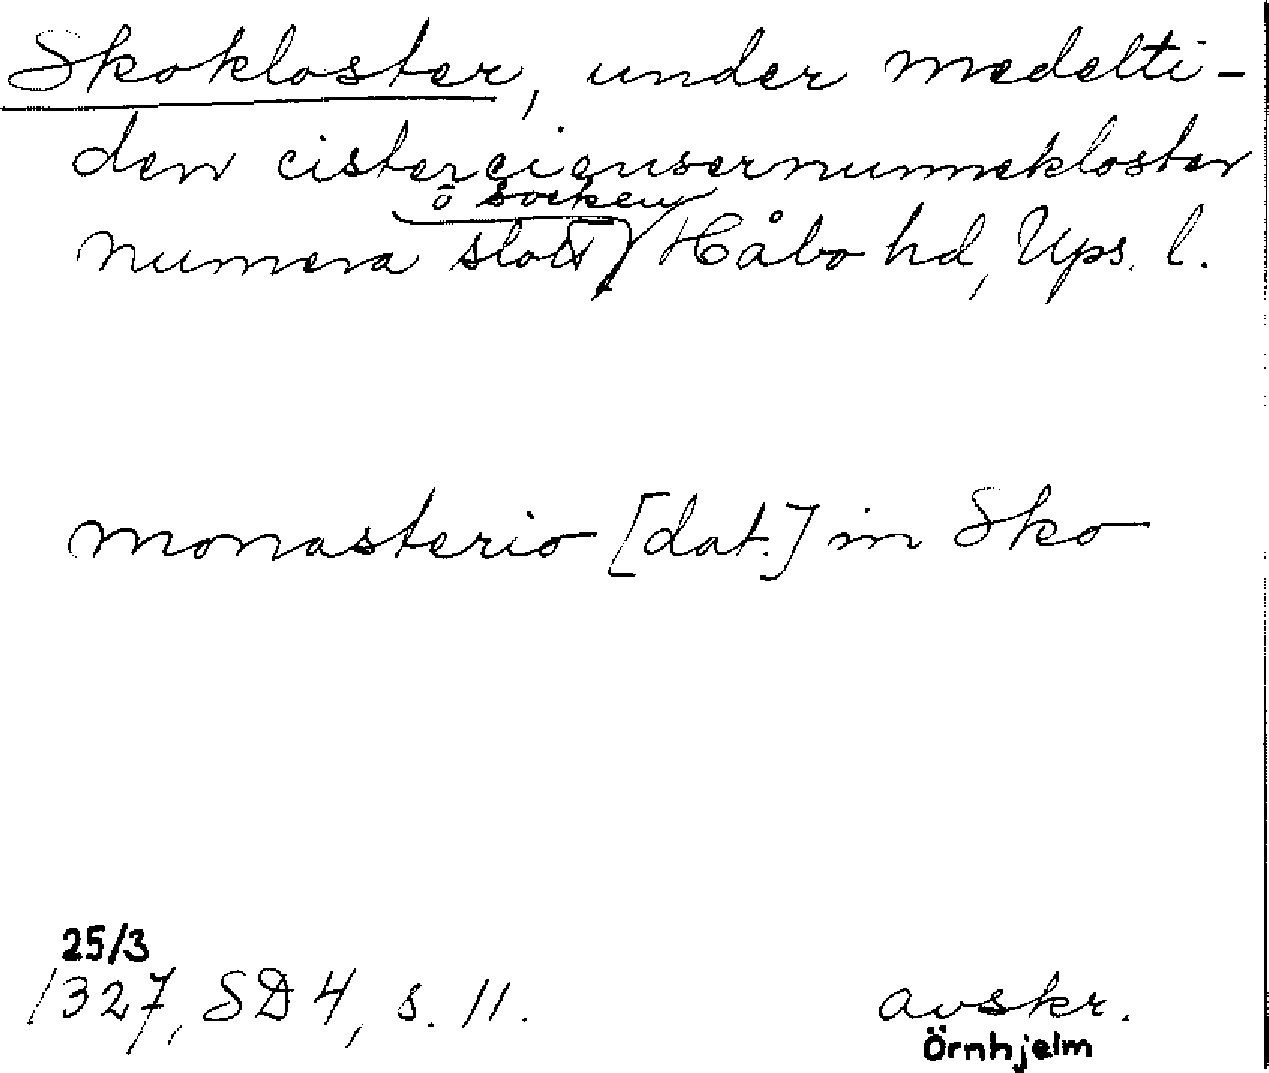 Skokloster, under medelti-
den cisterciensernunnekloster
o socken
numera slott, Håbo hd, Ups. l.
monasterio [dat.] in Sko
25/3
1327, SD 4, s. 11.
avskr.
Örnhjelm